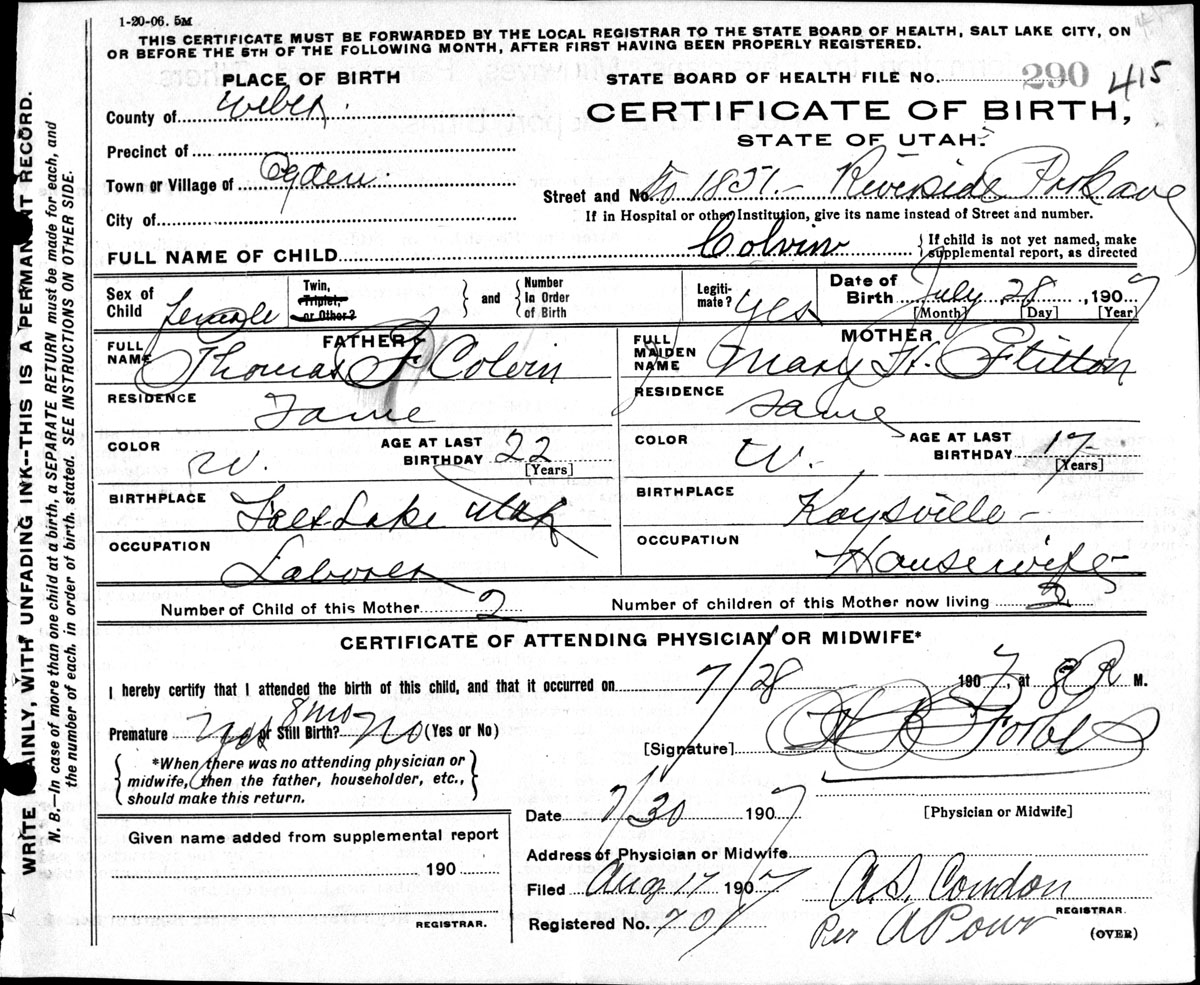 1-20-06. 5M
THIS CERTIFICATE MUST BE FORWARDED BY THE LOCAL REGISTRAR TO THE STATE BOARD OF HEALTH, SALT LAKE CITY, ON
OR BEFORE THE 5TH OF THE FOLLOWING MONTH, AFTER FIRST HAVING BEEN PROPERLY REGISTERED.
WRITE PLAINLY, WITH UNFADING INK--THIS IS A PERMANENT RECORD.
N. B.—In case of more than one child at a birth, a SEPARATE RETURN must be made for each, and
the number of each, in order of birth, stated. SEE INSTRUCTIONS ON OTHER SIDE.
PLACE OF BIRTH
County of Weber
Precinct of
Town or Village of Ogden
City of
STATE BOARD OF HEALTH FILE No. 290 415
CERTIFICATE OF BIRTH,
STATE OF UTAH.
Street and No. 1851 - Riverside Park ave
If in Hospital or other Institution, give its name instead of Street and number.
FULL NAME OF CHILD Colvin { If child is not yet named, make supplemental report, as directed
Sex of Child Female
Twin, Triplet, or Other? } and { Number In Order of Birth
Legitimate? Yes
Date of Birth July 28, 1907
[Month] [Day] [Year]
FATHER
FULL NAME Thomas F Colvin
RESIDENCE Same
COLOR W. AGE AT LAST BIRTHDAY 22 [Years]
BIRTHPLACE Salt Lake Utah
OCCUPATION Laborer
MOTHER
FULL MAIDEN NAME Mary H. Flitton
RESIDENCE Same
COLOR W. AGE AT LAST BIRTHDAY 17 [Years]
BIRTHPLACE Kaysville -
OCCUPATION Housewife
Number of Child of this Mother 2 Number of children of this Mother now living 2
CERTIFICATE OF ATTENDING PHYSICIAN OR MIDWIFE*
I hereby certify that I attended the birth of this child, and that it occurred on 7/28 1907, at 8 P M.
Premature Yes 8 mo or Still Birth? No (Yes or No)
*When there was no attending physician or
midwife, then the father, householder, etc.,
should make this return.
[Signature] H B Forbes
[Physician or Midwife]
Date 7/30 1907
Address of Physician or Midwife
Given name added from supplemental report
190
REGISTRAR.
Filed Aug 17 1907 A. S. Condon
REGISTRAR.
Registered No. 701 Per
(OVER)